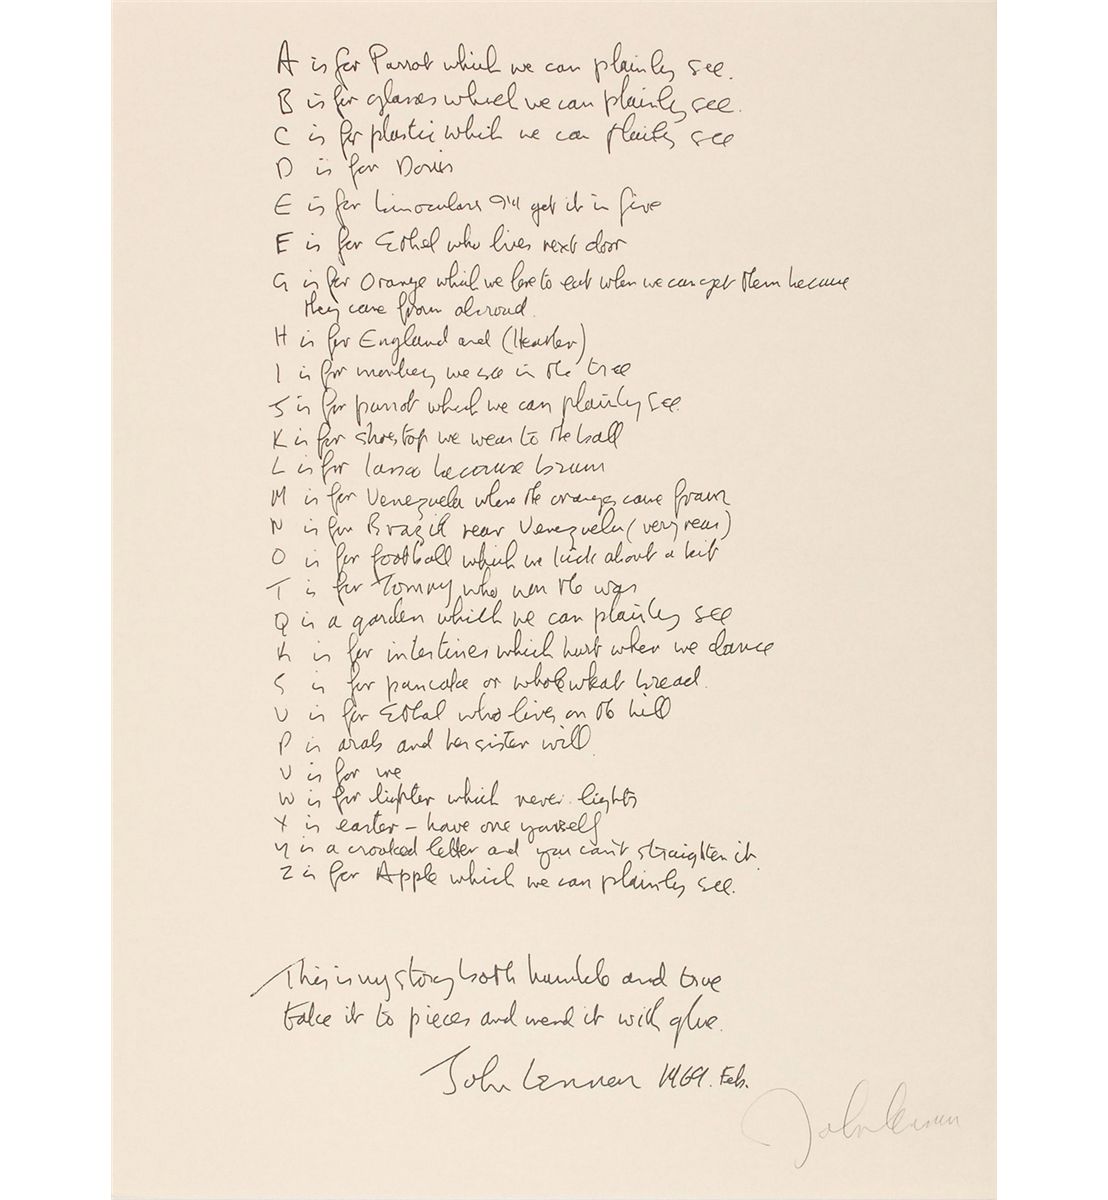 A is for Parrot which we can plainly see.
B is for glasses which we can plainly see.
C is for plastic which we can plainly see
D is for Doris
E is for binoculars I'll get it in five
E is for Ethel who lives next door
G is for Orange which we love to eat when we can get them because
they come from abroad.
H is for England and (Heather)
I is for monkey we see in the tree
J is for parrot which we can plainly see.
K is for shoetop we wear to the ball
L is for lasso because brown
M is for Venezuela where the oranges come from
N is for Brazil near Venezuela (very near)
O is for football which we kick about a bit
T is for Tommy who won the war
Q is a garden which we can plainly see
K is for intestines which hurt when we dance
S is for pancake or whole wheat bread.
U is for Ethel who lives on the hill
P is arab and her sister will.
V is for me
W is for lighter which never lights
X is easter – have one yourself
Y is a crooked letter and you can't straighten it.
Z is for Apple which we can plainly see.
This is my story both humble and true
take it to pieces and mend it with glue.
John Lennon 1969. Feb.
John Lennon